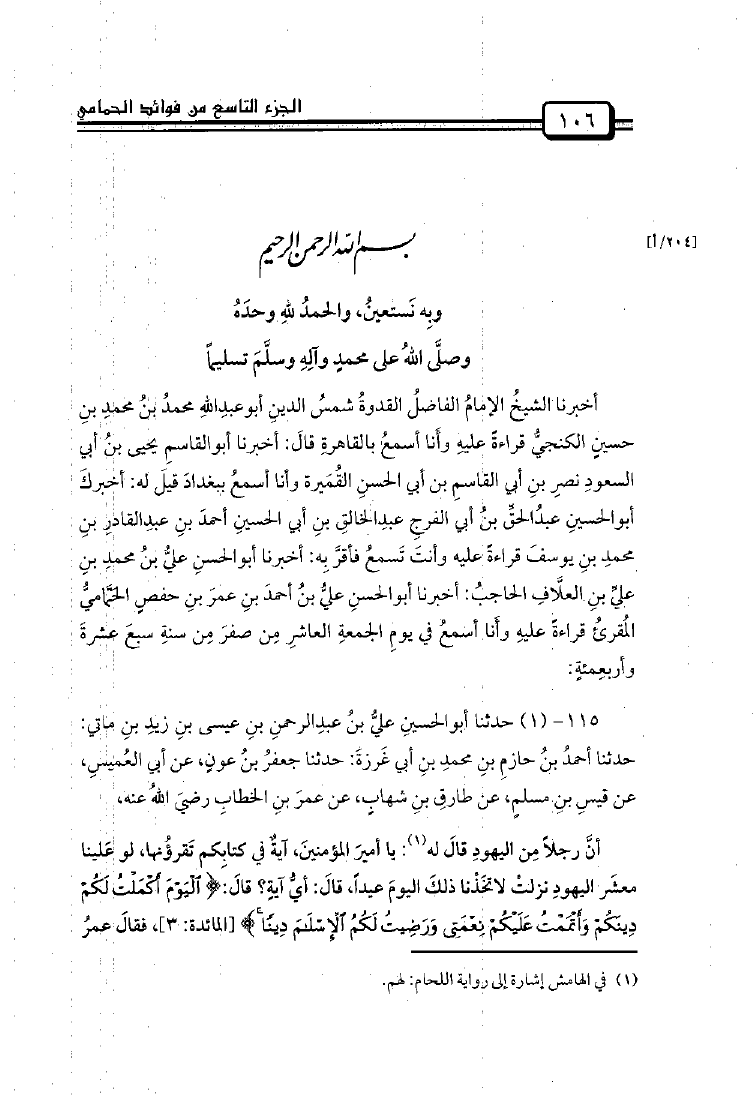 الجزء التاسع من فوائد الحمامي
١٠٦
[٢٠٤/أ]
بسم الله الرحمن الرحيم
وبِه نَستعينُ، والحمدُ للهِ وحدَهُ
وصلَّى اللهُ على محمدٍ وآلِهِ وسلَّمَ تسليماً
أخبرنا الشيخُ الإمامُ الفاضلُ القدوةُ شمسُ الدينِ أبوعبدِاللهِ محمدُ بنُ محمدِ بنِ
حسينِ الكنجيُّ قراءةً عليهِ وأَنا أسمعُ بالقاهرةِ قالَ: أخبرنا أبوالقاسمِ يحيى بنُ أبي
السعودِ نصرِ بنِ أبي القاسمِ بنِ أبي الحسنِ القُمَيرة وأنا أسمعُ ببغدادَ قيلَ له: أَخبركَ
أبوالحسينِ عبدُالحقِّ بنُ أبي الفرجِ عبدِالخالقِ بنِ أبي الحسينِ أحمدَ بنِ عبدِالقادرِ بنِ
محمدِ بنِ يوسفَ قراءةً عليه وأنتَ تَسمعُ فأقرَّ بِه: أخبرنا أبوالحسنِ عليُّ بنُ محمدِ بنِ
عليِّ بنِ العلَّافِ الحاجبُ: أخبرنا أبوالحسنِ عليُّ بنُ أحمدَ بنِ عمرَ بنِ حفصٍ الحَمَّاميُّ
المُقرئُ قراءةً عليهِ وأَنا أسمعُ في يومِ الجمعةِ العاشرِ مِن صفرَ مِن سنةِ سبعَ عشرةَ
وأربعمئةٍ:
١١٥- (١) حدثنا أبوالحسينِ عليُّ بنُ عبدِالرحمنِ بنِ عيسى بنِ زيدِ بنِ ماتي:
حدثنا أحمدُ بنُ حازمِ بنِ محمدِ بنِ أبي غَرزةَ: حدثنا جعفرُ بنُ عونٍ، عن أبي العُميسِ،
عن قيسِ بنِ مسلمٍ، عن طارقِ بنِ شهابٍ، عن عمرَ بنِ الخطابِ رضيَ اللهُ عنه،
أنَّ رجلاً مِن اليهودِ قالَ له(١): يا أميرَ المؤمنينَ، آيةٌ في كتابِكم تَقرؤُنها، لو عَلينا
معشَر اليهودِ نزلتْ لاتخَّذنا ذلكَ اليومَ عيداً، قالَ: أيُّ آيةٍ؟ قالَ: ﴿ ٱلْيَوْمَ أَكْمَلْتُ لَكُمْ
دِينَكُمْ وَأَتْمَمْتُ عَلَيْكُمْ نِعْمَتِى وَرَضِيتُ لَكُمُ ٱلْإِسْلَٰمَ دِينًا ۚ ﴾ [المائدة: ٣]، فقالَ عمرُ
(١) في الهامش إشارة إلى رواية اللحام: لهم.